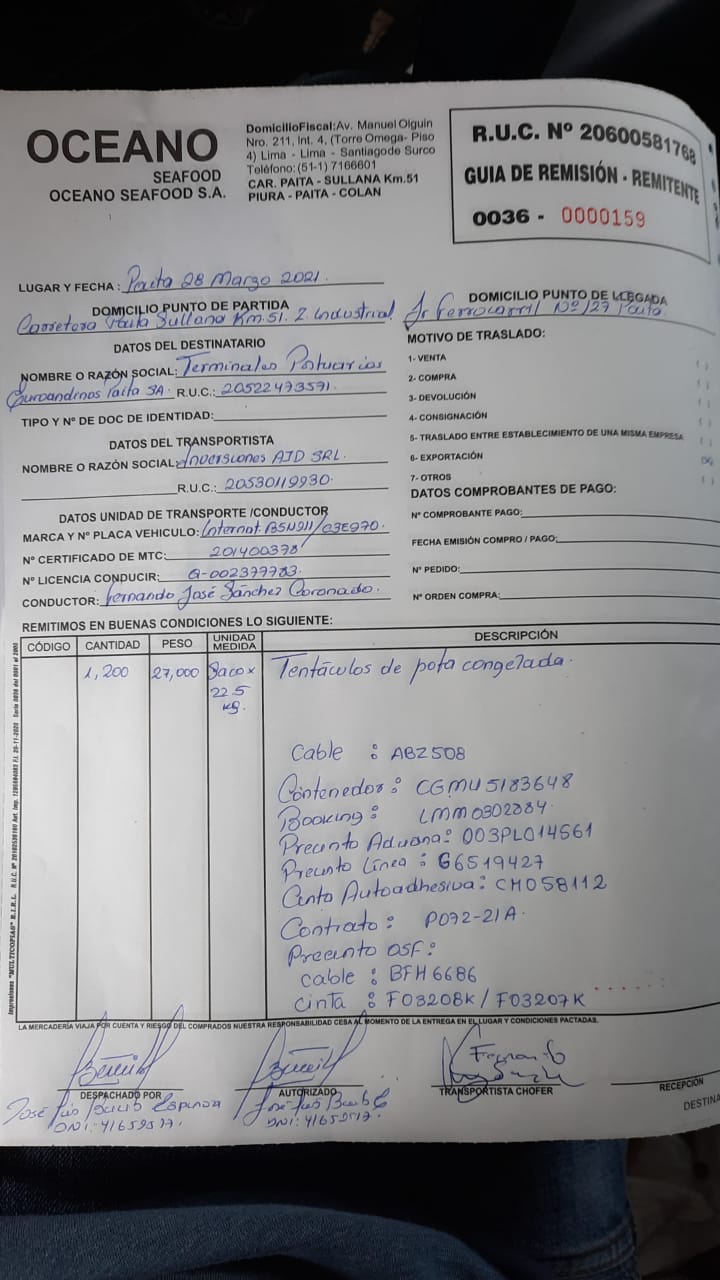 OCEANO
SEAFOOD
OCEANO SEAFOOD S.A.
DomicilioFiscal:Av. Manuel Olguin
Nro. 211, Int. 4, (Torre Omega- Piso
4) Lima - Lima - Santiagode Surco
Teléfono:(51-1) 7166601
CAR. PAITA - SULLANA Km.51
PIURA - PAITA - COLAN
R.U.C. Nº 20600581768
GUIA DE REMISIÓN - REMITENTE
0036 - 0000159
LUGAR Y FECHA : Paita 28 Marzo 2021.
DOMICILIO PUNTO DE PARTIDA
Carretera Paita Sullana Km.51. Z. Industrial
DOMICILIO PUNTO DE LLEGADA
Jr Ferrocarril Nº 127 Paita
DATOS DEL DESTINATARIO
NOMBRE O RAZÓN SOCIAL: Terminales Portuarios
Euroandinos Paita SA. R.U.C.: 20522473571.
TIPO Y Nº DE DOC DE IDENTIDAD:
DATOS DEL TRANSPORTISTA
NOMBRE O RAZÓN SOCIAL: Inversiones AJD SRL.
R.U.C.: 20530119930.
DATOS UNIDAD DE TRANSPORTE /CONDUCTOR
MARCA Y Nº PLACA VEHICULO: Internat. B5N911/C3E970.
Nº CERTIFICADO DE MTC: 201400378
Nº LICENCIA CONDUCIR: Q-002377783.
CONDUCTOR: Fernando José Sánchez Coronado.
MOTIVO DE TRASLADO:
1- VENTA ( )
2- COMPRA ( )
3- DEVOLUCIÓN ( )
4- CONSIGNACIÓN ( )
5- TRASLADO ENTRE ESTABLECIMIENTO DE UNA MISMA EMPRESA ( )
6- EXPORTACIÓN (x)
7- OTROS ( )
DATOS COMPROBANTES DE PAGO:
Nº COMPROBANTE PAGO:
FECHA EMISIÓN COMPRO / PAGO:
Nº PEDIDO:
Nº ORDEN COMPRA:
REMITIMOS EN BUENAS CONDICIONES LO SIGUIENTE:
CÓDIGO CANTIDAD PESO UNIDAD MEDIDA DESCRIPCIÓN
1,200 27,000 Saco x Tentáculos de pota congelada.
22.5
kg.
Cable : ABZ508
Contenedor : CGMU5183648
Booking : LMM0302884.
Precinto Aduana: 003PL014561
Precinto Línea : G6519427
Cinta Autoadhesiva: CM058112
Contrato : P072-21A.
Precinto OSF:
Cable : BFH6686
Cinta : F03208K / F03207K
LA MERCADERÍA VIAJA POR CUENTA Y RIESGO DEL COMPRADOS NUESTRA RESPONSABILIDAD CESA AL MOMENTO DE LA ENTREGA EN EL LUGAR Y CONDICIONES PACTADAS.
DESPACHADO POR
AUTORIZADO
TRANSPORTISTA CHOFER
RECEPCIÓN
José Luis Espinoza
DNI: 41659517.
José Luis
DNI: 41659517.
DESTINA